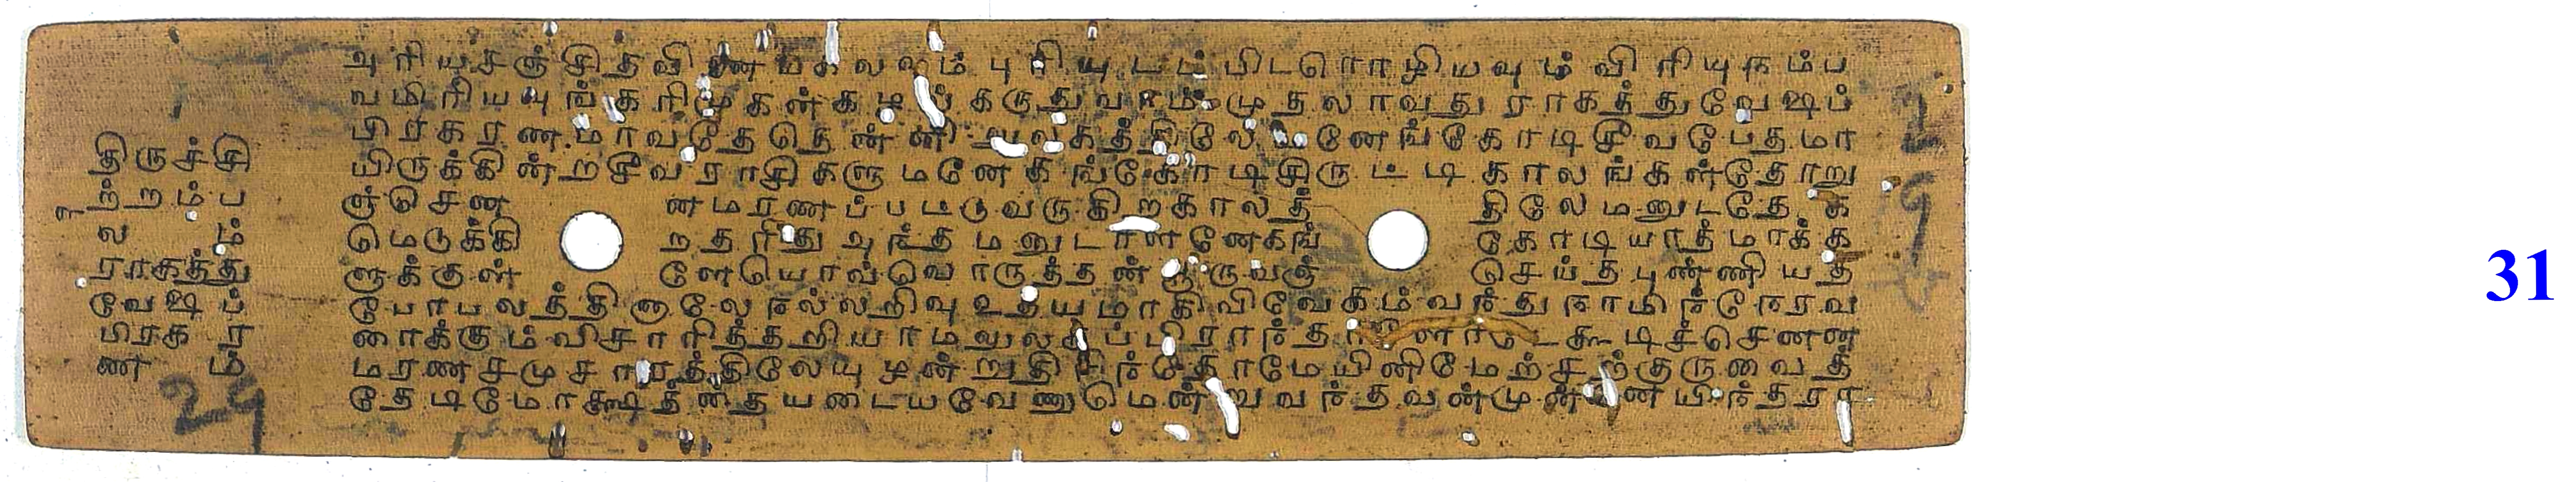 திருச்சி
ற்றம்ப
லம்
ராகத்து
வேஷப்
பிரகர
ணம்
29
அரியசஞ்சிதவினையகலவும் புரியுடப்பிடரொழியவும் விரியுநம்ப
வமிரியவுங்கரிமுகன்கழல் கருதுவாம் முதலாவது ராகத்துவேஷப்
பிரகரணமாவதேதென்னி லுலகத்திலே மனேங்கோடிசீவபேதமா
யிருக்கின்றசீவராசிகளுமனேகங்கோடிதிருட்டிகாலங்கள்தோறு
ஞ்செண னமரணப்பட்டுவருகிறகாலத் திலேமனுடதேக
மெடுக்கி றதரிது அந்த மனுடாளனேகங் கோடியாத்மாக்க
ளுக்குள் ளேயொவ்வொருத்தன் பூருவஞ் செய்த புண்ணியத
போபலத்தினாலே நல்லறிவு உதயமாகிவிவேகம்வந்து நாமிந்நேரவ
ரைக்கும்விசாரித்தறியாமலுல ப்பிராந்த கூடிச்செணன
மரணசமுசாரத்திலேயுழன்றுதிரிந்தோமேயினிமேற்சற்குருவைத்
தேடிமோக்ஷத்தையடையவேணுமென்றுவந்தவன்முன்
31